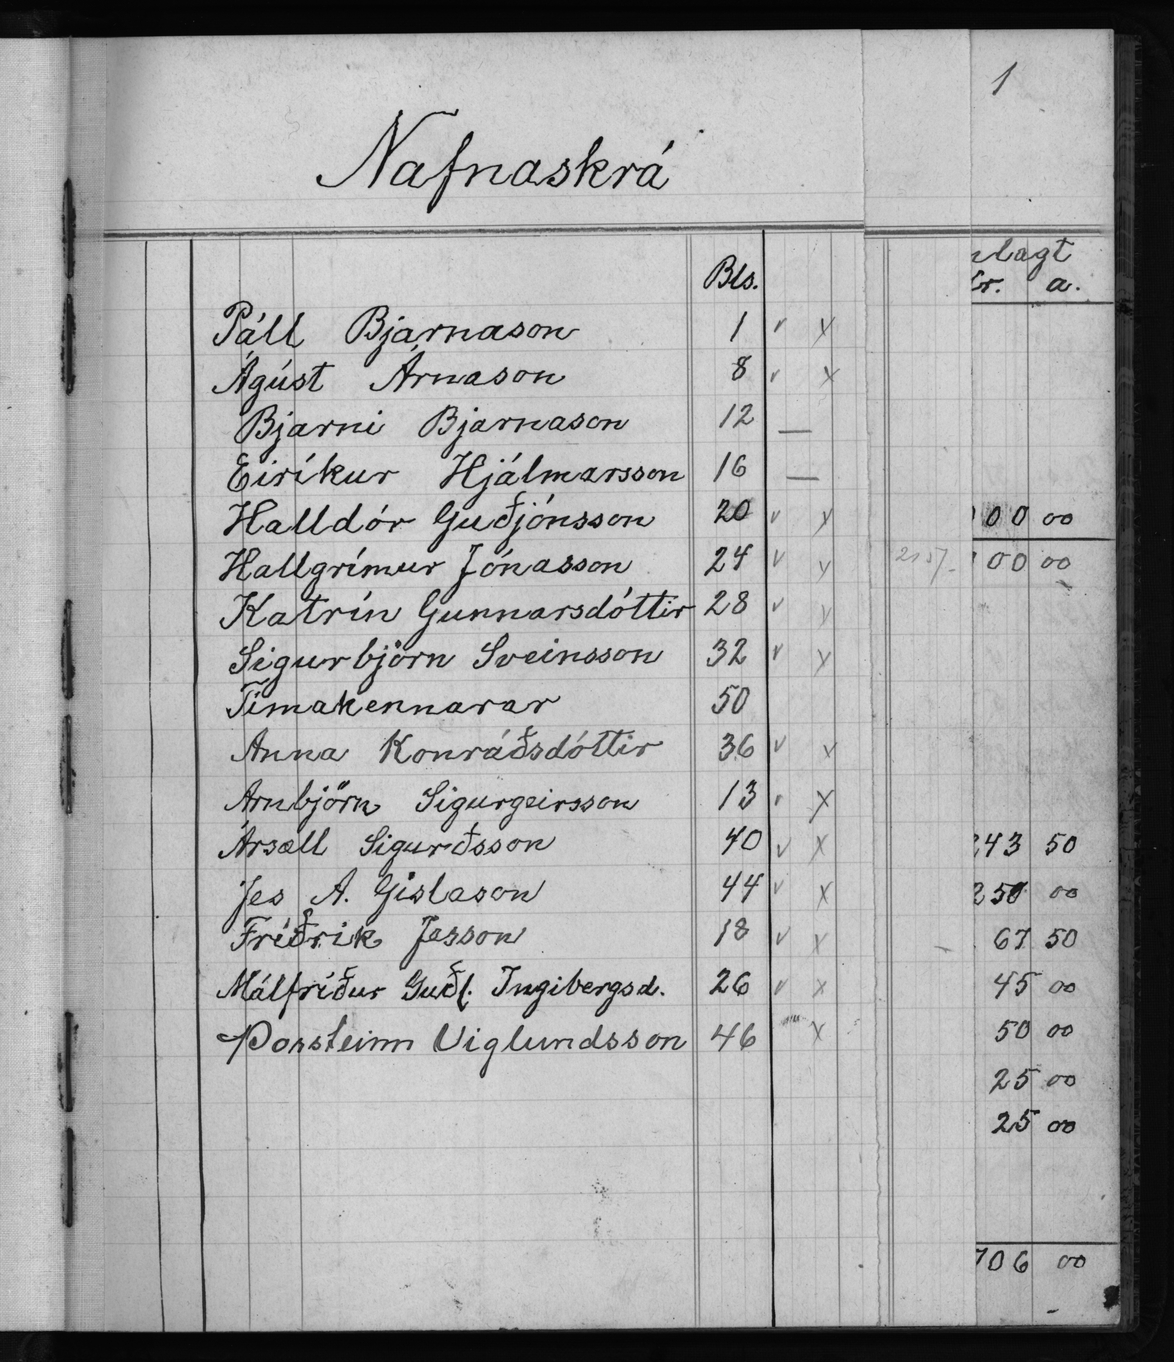 1
Nafnaskrá
Bls.
lagt
kr. a.
Páll Bjarnason 1 v x
Ágúst Árnason 8 v x
Bjarni Bjarnason 12 —
Eiríkur Hjálmarsson 16 —
Halldór Guðjónsson 20 v x
00 00
Hallgrímur Jónasson 24 v x
00 00
Katrín Gunnarsdóttir 28 v x
Sigurbjörn Sveinsson 32 v x
Tímakennarar 50
Anna Konráðsdóttir 36 v x
Arnbjörn Sigurgeirsson 13 v x
Ársæll Sigurðsson 40 v x
243 50
Jes A. Gíslason 44 v x
250 00
Friðrik Jesson 18 v x
67 50
Málfríður Guðl. Ingibergsd. 26 v x
45 00
Þorsteinn Víglundsson 46 x
50 00
25 00
25 00
706 00